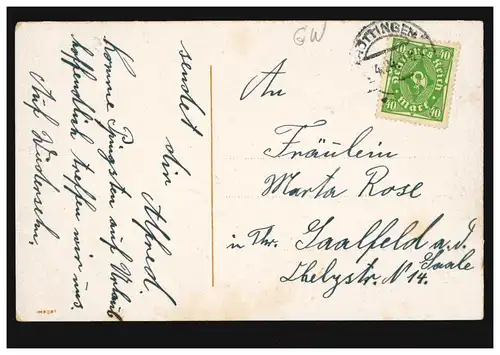 GW
GÖTTINGEN
40 40
Deutsches Reich
Mark
40 40
An
Fräulein
Marta Rose
in Thr. Saalfeld a.d.
Saale
N 14.
sendet dir Alfred.
Komme Pfingsten auf Urlaub
hoffendlich treffen wir uns.
Auf Wiedersehn,